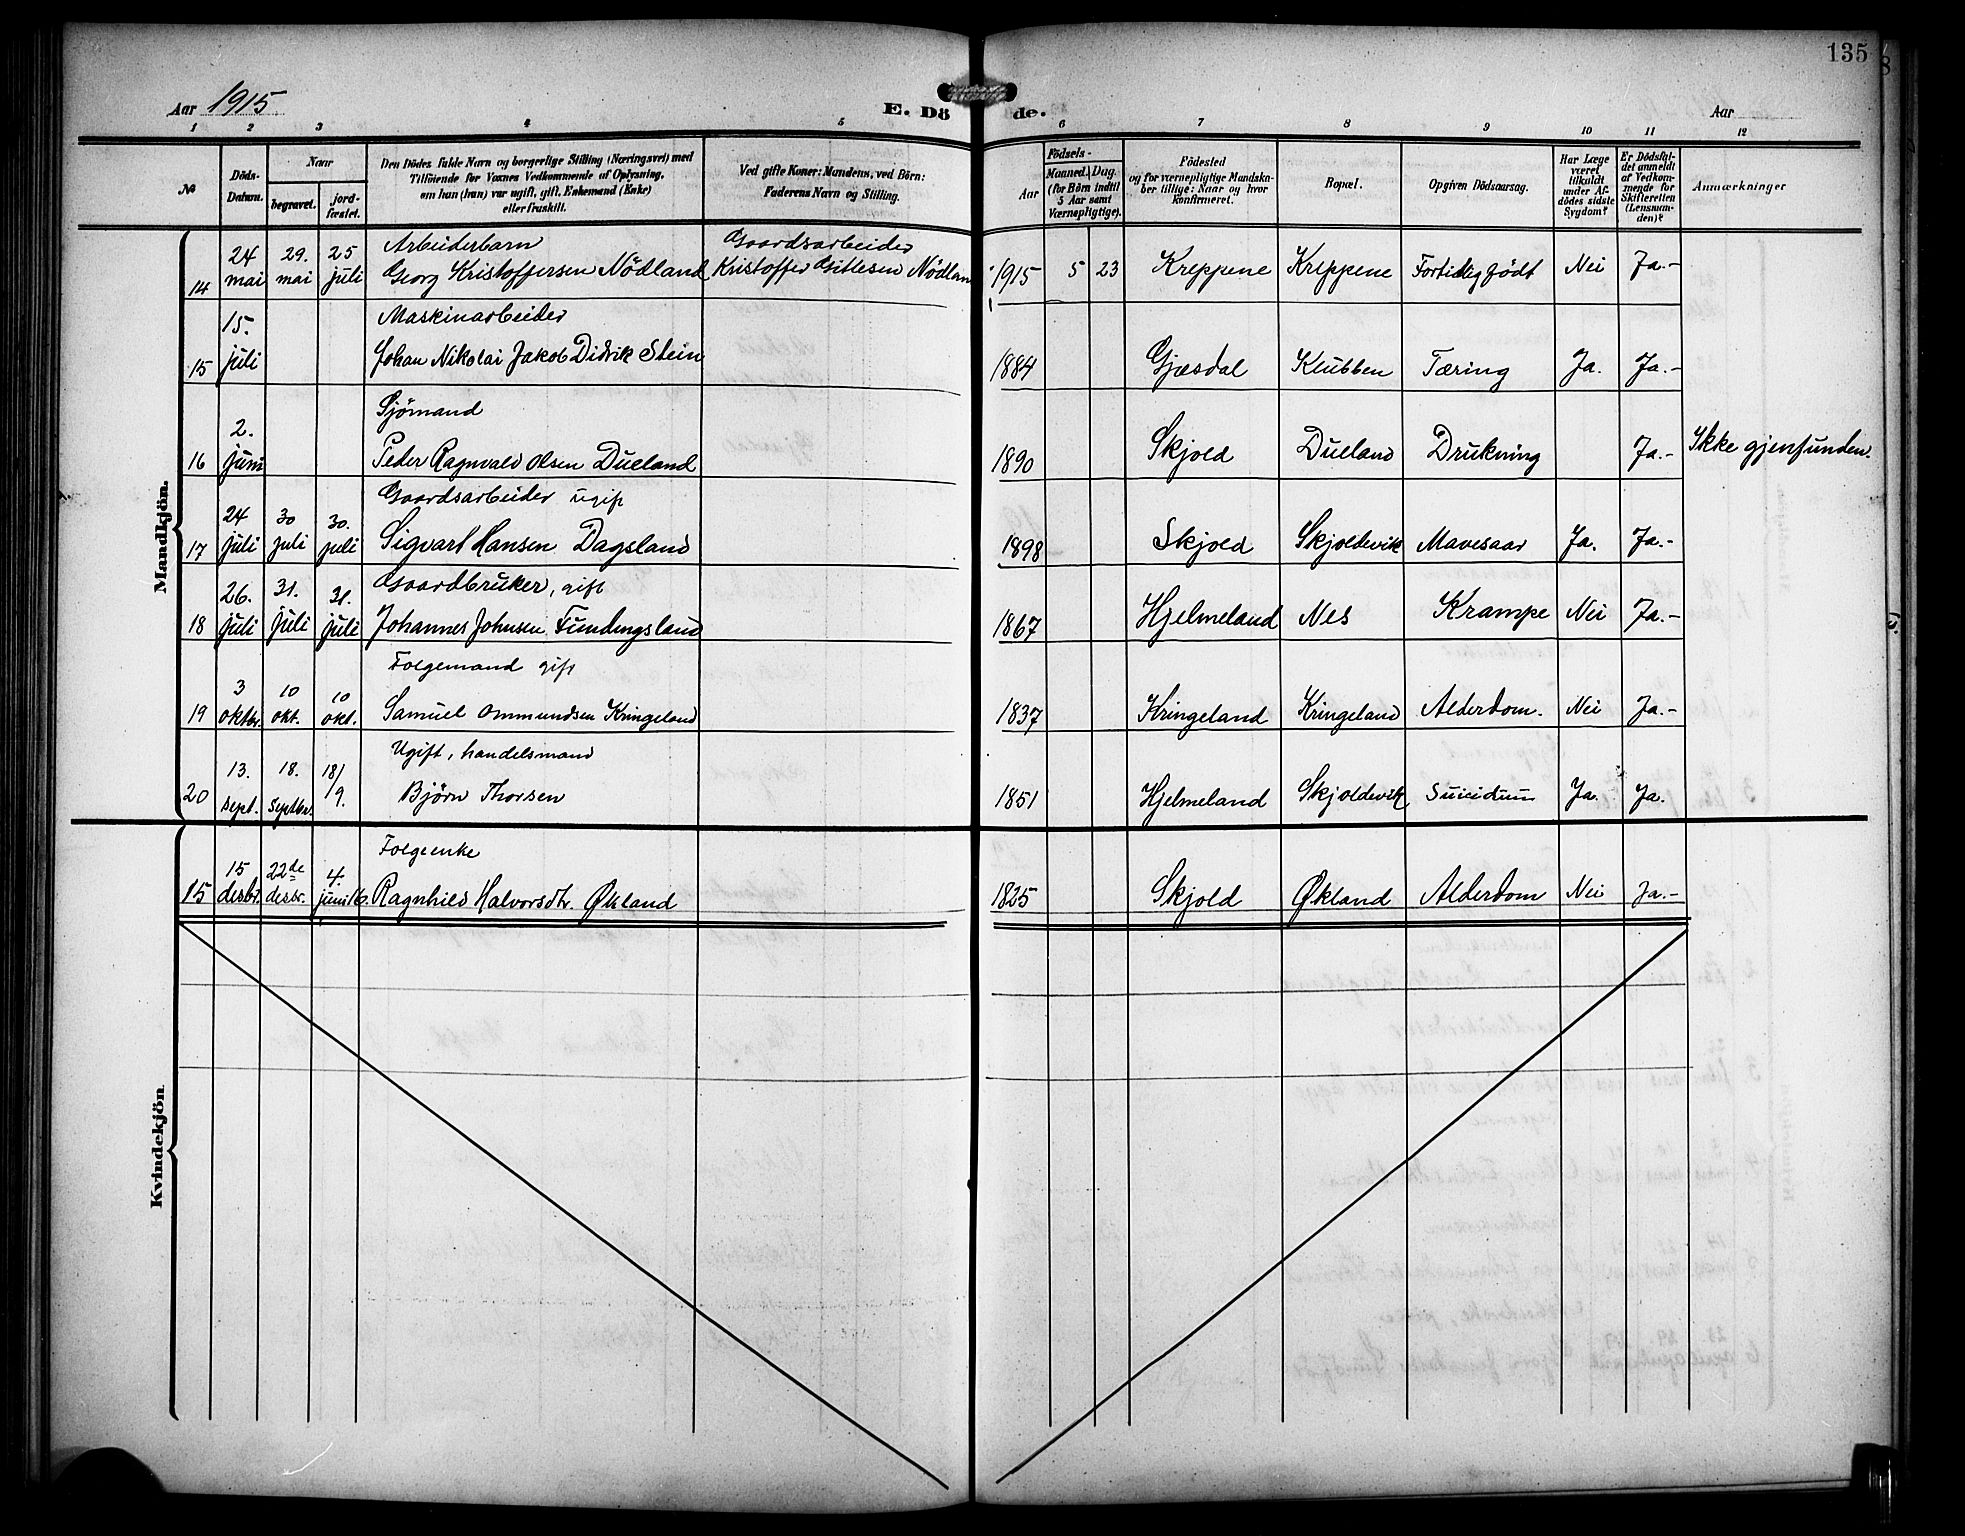 135
Aar 1915
E. Döde.
Aar
1 2 3 4 5 6 7 8 9 10 11 12
№
Döds-Datum.
Naar
begravet.
jord-fæstet.
Den Dödes fulde Navn og borgerlige Stilling (Næringsvei) med
Tilföiende for Voxnes Vedkommende af Oplysning,
om han (hun) var ugift, gift, Enkemand (Enke)
eller fraskilt.
Ved gifte Koner: Mandens, ved Börn:
Faderens Navn og Stilling.
Födsels-
Aar
Maaned. Dag.
(for Börn indtil
5 Aar samt
Værnepligtige).
Födested
og for værnepligtige Mandska-
ber tillige: Naar og hvor
konfirmeret.
Bopæl.
Opgiven Dödsaarsag.
Har Læge
været
tilkaldt
under Af-
dödes sidste
Sygdom?
Er Dödsfal-
det anmeldt
af Vedkom-
mende for
Skifteretten
(Lensman-
den)?
Anmærkninger
Mandkjön.
24 29. 25 Arbeiderbarn Gaardsarbeider
14 mai mai juli Georg Kristoffersen Nödland Kristoffer Gitlesen Nödlan 1915 5 23 Kreppene Kreppene Fortidligfödt Nei Ja.-
15. Maskinarbeider
15 juli Johan Nikolai Jakob Didrik Stein 1884 Gjesdal Klubben Tæring Ja. Ja.-
2. Sjömand
16 juni Peder Ragnvald Olsen Dueland 1890 Skjold Dueland Drukning Ja.- Ikke gjenfunden.
24 30 30. Gaardsarbeider ugift
17 juli juli juli Sigvart Hansen Dagsland 1898 Skjold Skjoldevik Mavesaar Ja. Ja.-
26. 31. 31. Gaardbruker, gift
18 juli juli juli Johannes Johnsen Fundingsland 1867 Hjelmeland Nes Krampe Nei Ja.-
3 10 10 Folgemand gift
19 oktbr. okt. okt. Samuel Ommundsen Kringeland 1837 Kringeland Kringeland Alderdom. Nei Ja.-
13. 18. 18/9. Ugift, handelsmand
20 sept. septbr. Björn Thorsen 1851 Hjelmeland Skjoldevik Suicidium Ja. Ja.
Kvindekjön
15 22de 4. Folgeenke
15 desbr. desbr. juni 16. Ragnhild Halvorsdtr. Økland 1825 Skjold Økland Alderdom Nei Ja.-